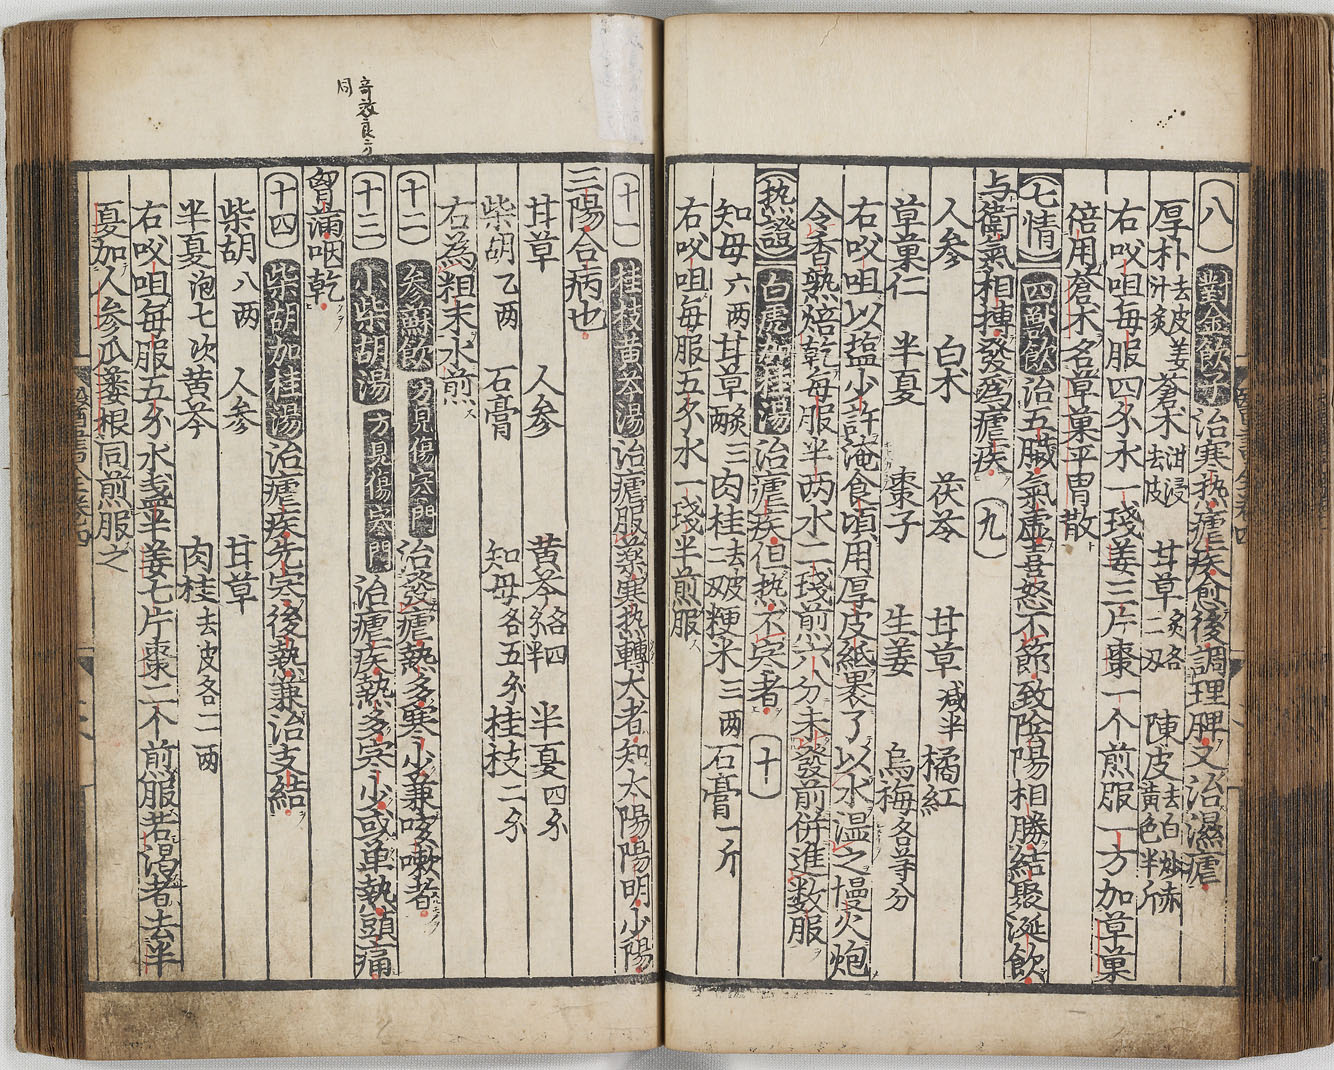 八 對金飲子治寒热瘧疾愈後調理脾又治濕瘧
厚朴去皮姜汁炙 蒼术泔浸去皮 甘草二两炙各 陳皮去白炒赤黃色半斤
右㕮咀每服四夕水一琖姜三片棗一个煎服一方加草菓
倍用蒼术名草菓平胃散
七情 四獸飲治五臟氣虚喜怒不節致陰陽相勝結聚涎飲
与衛氣相搏發為瘧疾 九
人参 白术 茯苓 甘草減半 橘紅
草菓仁 半夏 棗子 生姜 烏梅各等分
右㕮咀以塩少許淹食頃用厚皮紙褁了以水温之慢火炮
令香熟焙乾每服半两水二琖煎六分未發前併進数服
热證 白虎加桂湯治瘧疾但热不寒者 十
知母六两 甘草三两 肉桂去皮三两 粳米三两 石膏一斤
右㕮咀每服五夕水一琖半煎服
十一 桂枝黄芩湯治瘧服藥寒热轉大者知太陽陽明少陽
三陽合病也
甘草 人参 黄芩各四夕半 半夏四夕
柴胡乙两 石膏 知母各五夕 桂枝二夕
右為粗末水煎
十二 参蘇飲方見傷寒門 治發瘧熱多寒少兼咳嗽者
十三 小柴胡湯 方見傷寒門 治瘧疾熱多寒少或单熱頭痛
胷滿咽乾
十四 柴胡加桂湯治瘧疾先寒後熱兼治支結
柴胡八两 人参 甘草
半夏泡七次 黄芩 肉桂去皮各二两
右㕮咀每服五夕水盞半姜七片棗二个煎服若渴者去半
夏加人参瓜蔞根同煎服之
奇效良方
同